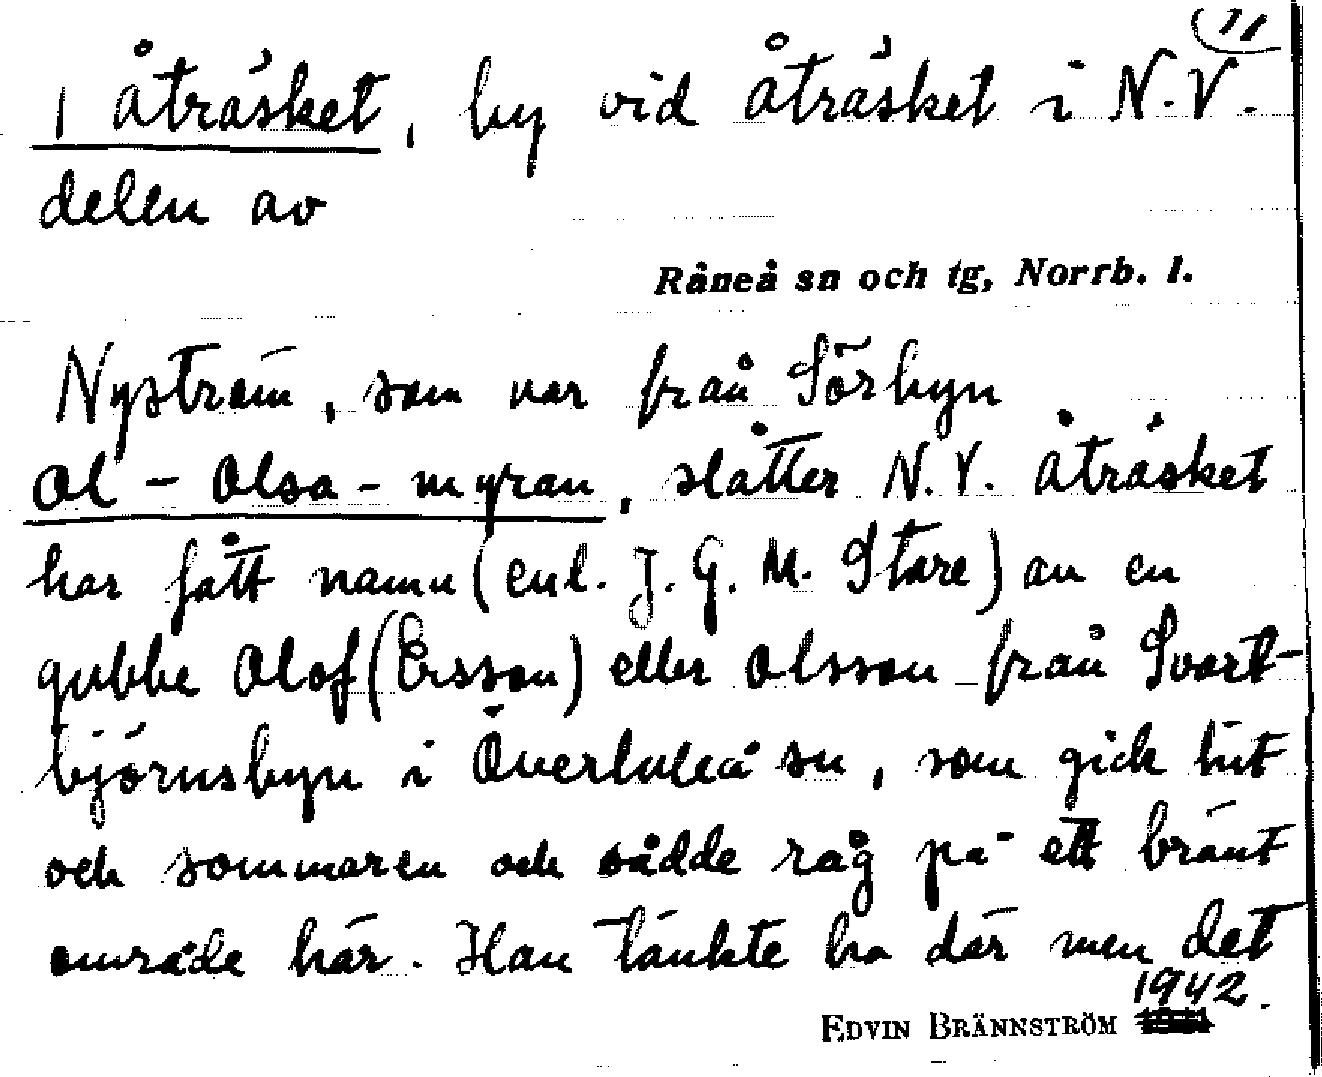 11
1 Åträsket, by vid Åträsket i N.V.
delen av
Råneå sn och tg, Norrb. l.
Nyström, som var från Sörbyn
Ol-Olsa-myran, slåtter N.V. Åträsket
har fått namn (enl. J. G. M. Stare) av en
gubbe Olof (Ersson) eller Olsson från Svart-
björnsbyn i Överluleå sn, som gick hit
och sommaren och sådde råg på ett bränt
område här. Han tänkte bo där men det
1942.
EDVIN BRÄNNSTRÖM